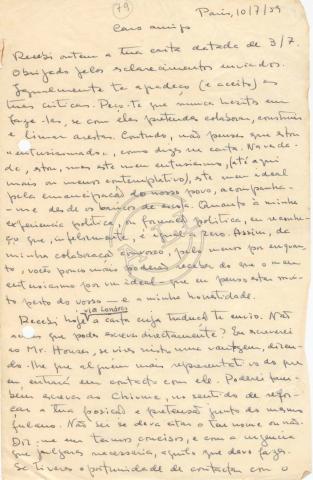 (79)
Paris, 10/7/59
Caro amigo
Recebi ontem a tua carta datada de 3/7.
Obrigado pelos esclarecimentos enviados.
Igualmente te agradeço (e aceito) as
tuas críticas. Peço-te que nunca hesites em
fazê-las, se com elas pretendes colaborar, construir
e limar arestas. Contudo, não penses que estou
"entusiasmado", como dizes na carta. Na verda-
de, estou, mas este meu entusiasmo, (até aqui
mais ou menos contemplativo), este meu ideal
pela emancipação do nosso povo, acompanha-
-me desde os bancos da escola. Quanto à minha
experiência política, ou formação política, eu reconhe-
ço que, infelizmente, é igual a zero. Assim, da
minha colaboração, pelo menos por enquan-
to, vocês pouco mais poderão receber do que o meu
entusiasmo por um ideal que eu penso esta muito
perto do vosso — e a minha honestidade.
via Londres
Recebi hoje a carta cuja tradução te envio. Não
achas que podes escrever directamente? Eu escreverei
ao Mr. Houser, se vires nisto uma vantagem, dizen-
do-lhe que alguém mais representativo do que
eu, entrará em contacto com ele. Poderei tam-
bém escrever ao Chiume, no sentido de refor-
çar a tua posição e pretensão junto do mesmo
fulano. Não sei se devo citar o teu nome ou não.
Diz-me em termos concisos, e com a urgência
que julgares necessária, aquilo que devo fazer.
Se tiveres oportunidade de contactar com o